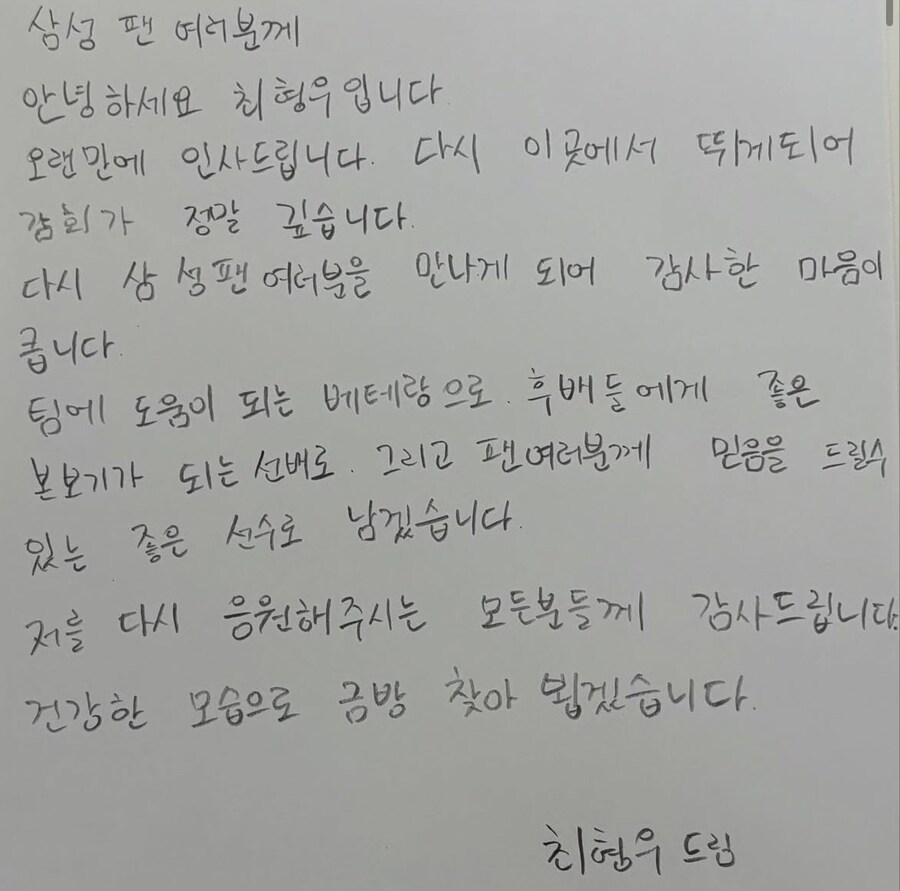 삼성 팬 여러분께
안녕하세요 최형우입니다
오랜만에 인사드립니다. 다시 이곳에서 뛰게되어
감회가 정말 깊습니다.
다시 삼성팬 여러분을 만나게 되어 감사한 마음이
큽니다.
팀에 도움이 되는 베테랑으로. 후배들에게 좋은
본보기가 되는 선배로. 그리고 팬여러분께 믿음을 드릴수
있는 좋은 선수로 남겠습니다.
저를 다시 응원해주시는 모든분들께 감사드립니다.
건강한 모습으로 금방 찾아 뵙겠습니다.
최형우 드림